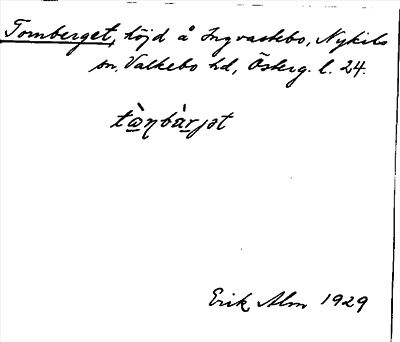 Tomberget, höjd å Ingvastebo, Nykils
sn, Valkebo hd, Österg. l. 24.
Erik Alm 1929